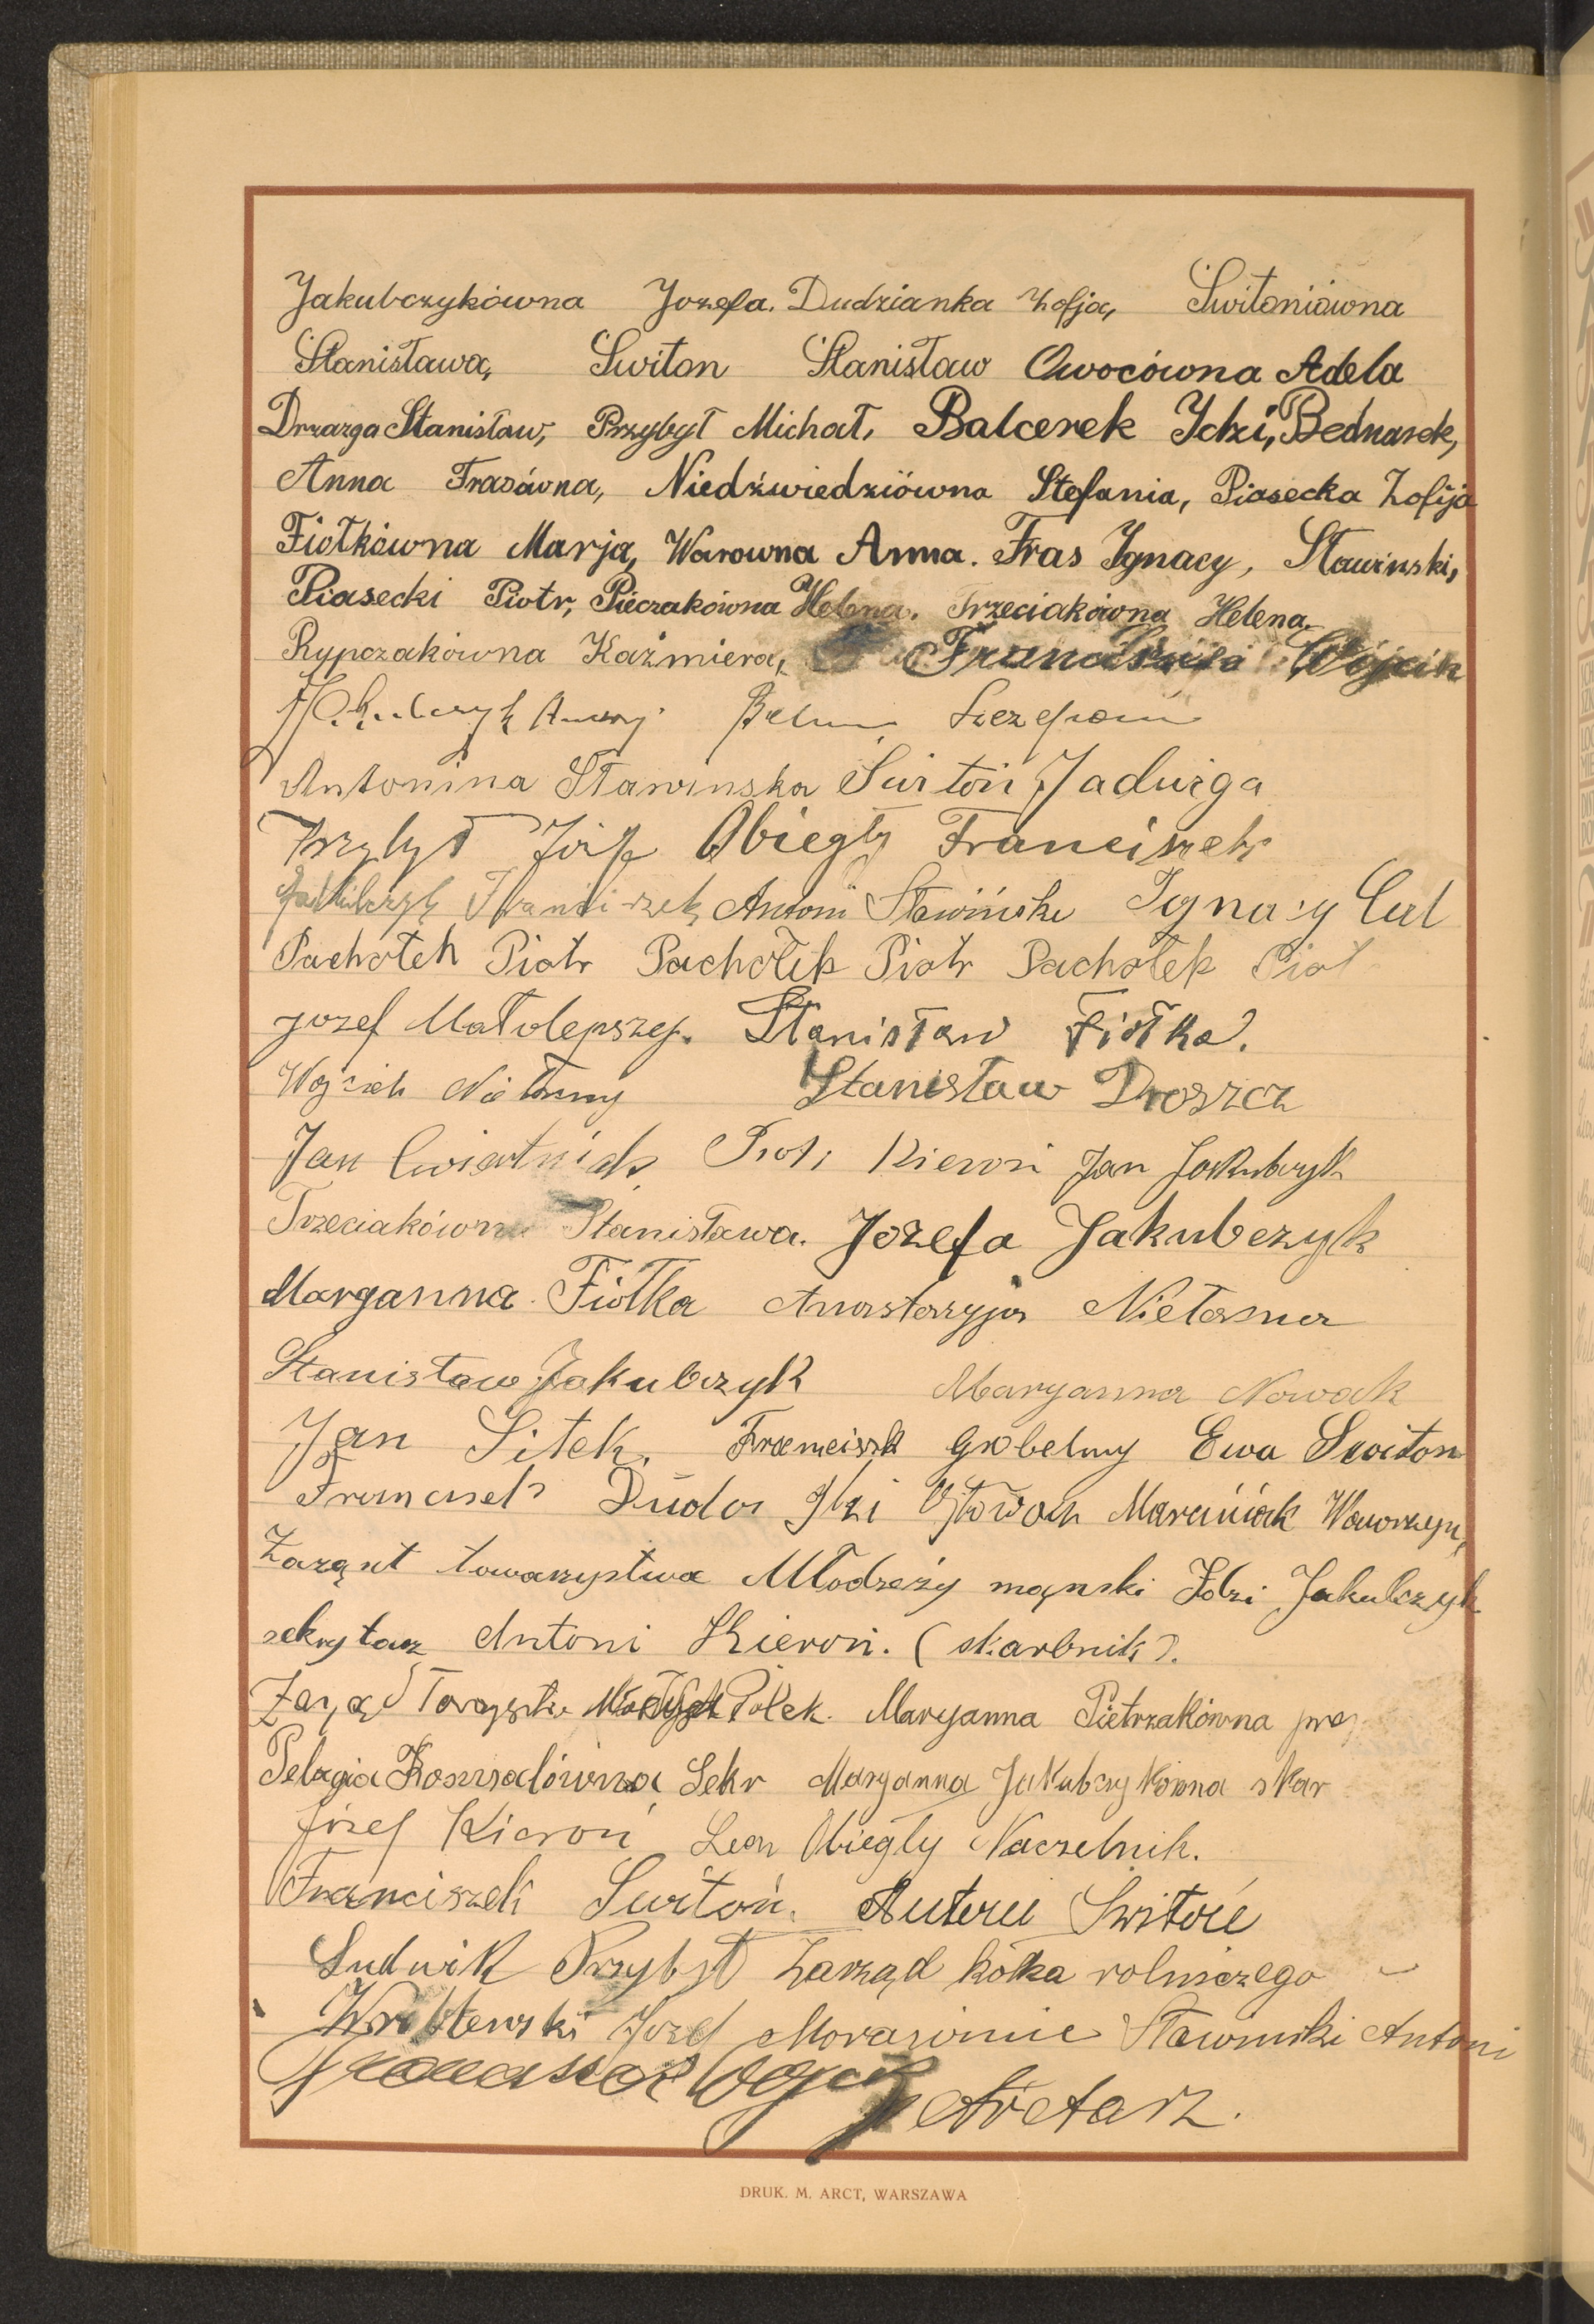 Jakubczykówna Jozefa. Dudzianka Zofja, Switoniówna
Stanisława, Switon Stanisław Owocówna Adela
Drzazga Stanisław, Przybył Michał, Balcerek Idzi, Bednarek,
Anna Frasówna, Niedźwiedziówna Stefania, Piasecka Zofija
Fiołkówna Marja, Warowna Anna. Fras Ignacy, Sławinski,
Piasecki Piotr, Pieczakówna Helena. Trzeciakówna Helena
Rypczakówna Kaźmiera, Franciszek Wójcik
Szczepan
Antonina Sławinska Świtoń Jadwiga
Przybył Józef Obiegły Franciszek
Jakubczyk Franciszek Antoni Sławiński Ignacy Cul
Pachołek Piotr Pachołek Piotr Pachołek Piot
Jozef Małolepszy. Stanisław Fiołka.
Wojcieh Niełasny Stanisław Droszcz
Jan Cwiertniak Piotr Kieroń Jan Jakubczyk
Trzeciakówna Stanisława. Jozefa Jakubczyk
Maryanna Fiołka Anastazyja Niełasna
Stanisław Jakubczyk Maryanna Nowak
Jan Sitek, Franciszek Grobelny Ewa Switon
Duda Marciniak Wawrzyn,
Zarząnt towarzystwa Młodzeży męnski Idzi Jakubczyk
sekrytarz Antoni Kieroń. (skarbnik).
Zarząd Młodych Polek. Maryanna Pietrzakówna prez
Pelagia Sekr Maryanna Jakubczykówna skar
Józef Kieroń Leon Obiegły Naczelnik.
Franciszek Świtoń. Antoni Switoń
Ludwik Przybył Zarząd kółka rolniczego
Wróblewski Jozef Sławinski Antoni
Franciszek Wójcik sekretarz.
DRUK. M. ARCT, WARSZAWA